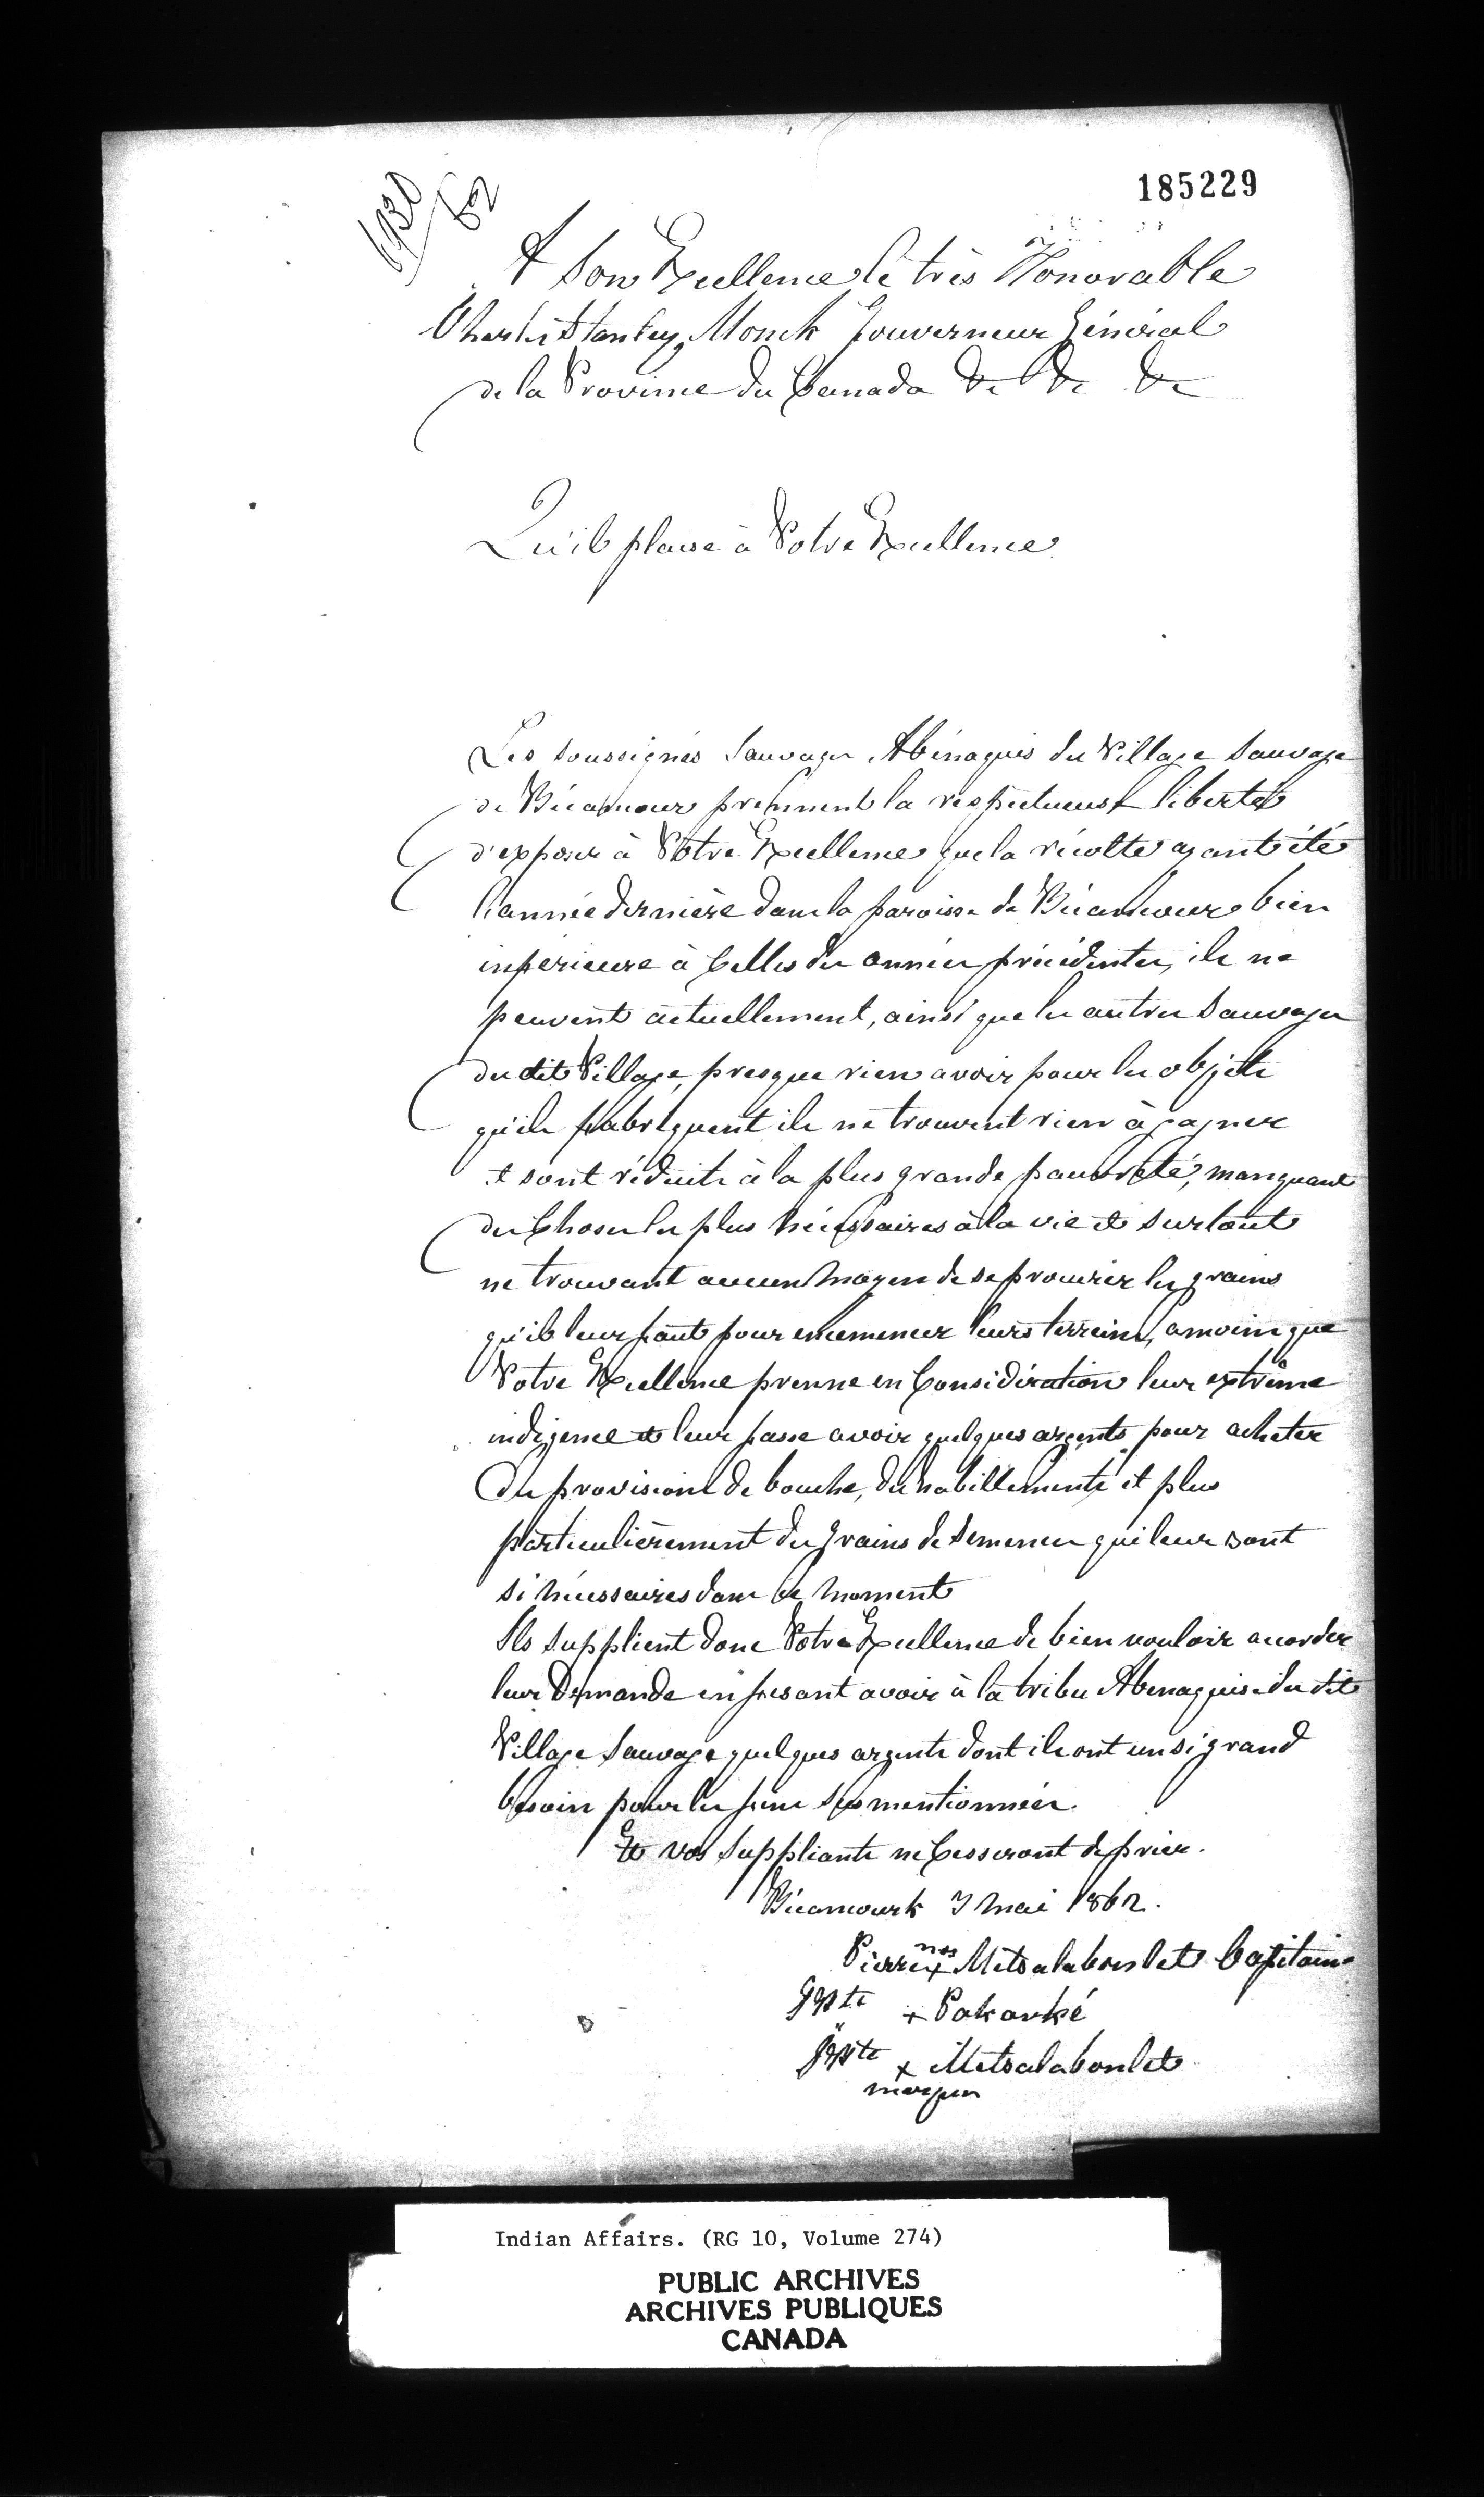 185229
A Son Excellence le très Honorable
Charles Stanley Monck Gouverneur Général
de la Province du Canada &c &c &c
Qu'il plaise à Votre Excellence
Les soussignés Sauvages Abénaquis du Village Sauvage
de Bécancour prennent la respectueuse liberté
d'exposer à Votre Excellence que la récolte ayant été
l'année dernière dans la paroisse de Bécancour bien
inférieure à Celles des années précédentes, ils ne
peuvent actuellement, ainsi que les autres Sauvages
du dit Village, presque rien avoir pour les objets
qu'ils fabriquent ils ne trouvent rien à gagner
et sont réduits à la plus grande pauvreté, manquant
des Choses les plus nécessaires à la vie et surtout
ne trouvant aucun moyen de se procurer les grains
qu'il leur faut pour ensemencer leurs terreins, amoins que
Votre Excellence prenne en Considération leur extrême
indigence et leur fasse avoir quelques argents pour acheter
des provisions de bouche, des habillements et plus
particulièrement des grains de Semences qui leur sont
si nécessaires dans ce moment
Ils supplient donc Votre Excellence de bien vouloir accorder
leur Demande en fesant avoir à la tribu Abenaquise du dit
Village Sauvage quelques argents dont ils ont un si grand
besoin pour les fins susmentionnées.
Et vos Suppliants ne Cesseront de prier.
Bécancourt 7 Mai 1862.
Pierre x Metsalabonlet Capitaine
Jpte + Pakauké
Jpte x Metsalabonlet
marques
Indian Affairs. (RG 10, Volume 274)
PUBLIC ARCHIVES
ARCHIVES PUBLIQUES
CANADA